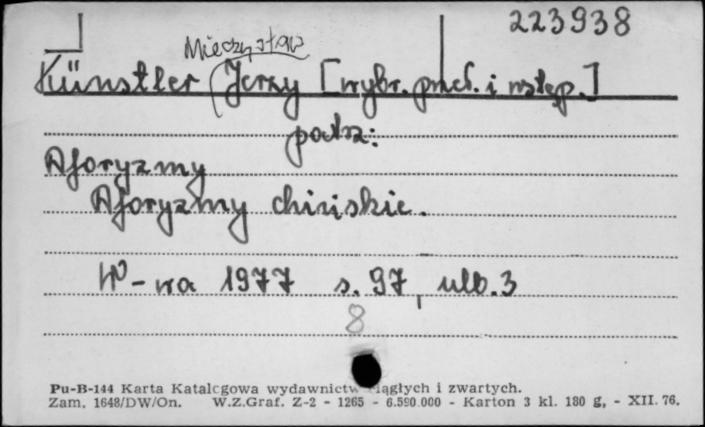 223938
Mieczysław
Künstler (Jerzy [wybr. przeł. i wstęp.]
patrz:
Aforyzmy
Aforyzmy chińskie.
W-wa 1977 s. 97, nlb. 3
8
Pu-B-144 Karta Katalogowa wydawnictw ciągłych i zwartych.
Zam. 1648/DW/On. W.Z.Graf. Z-2 - 1265 - 6.590.000 - Karton 3 kl. 180 g, - XII. 76.